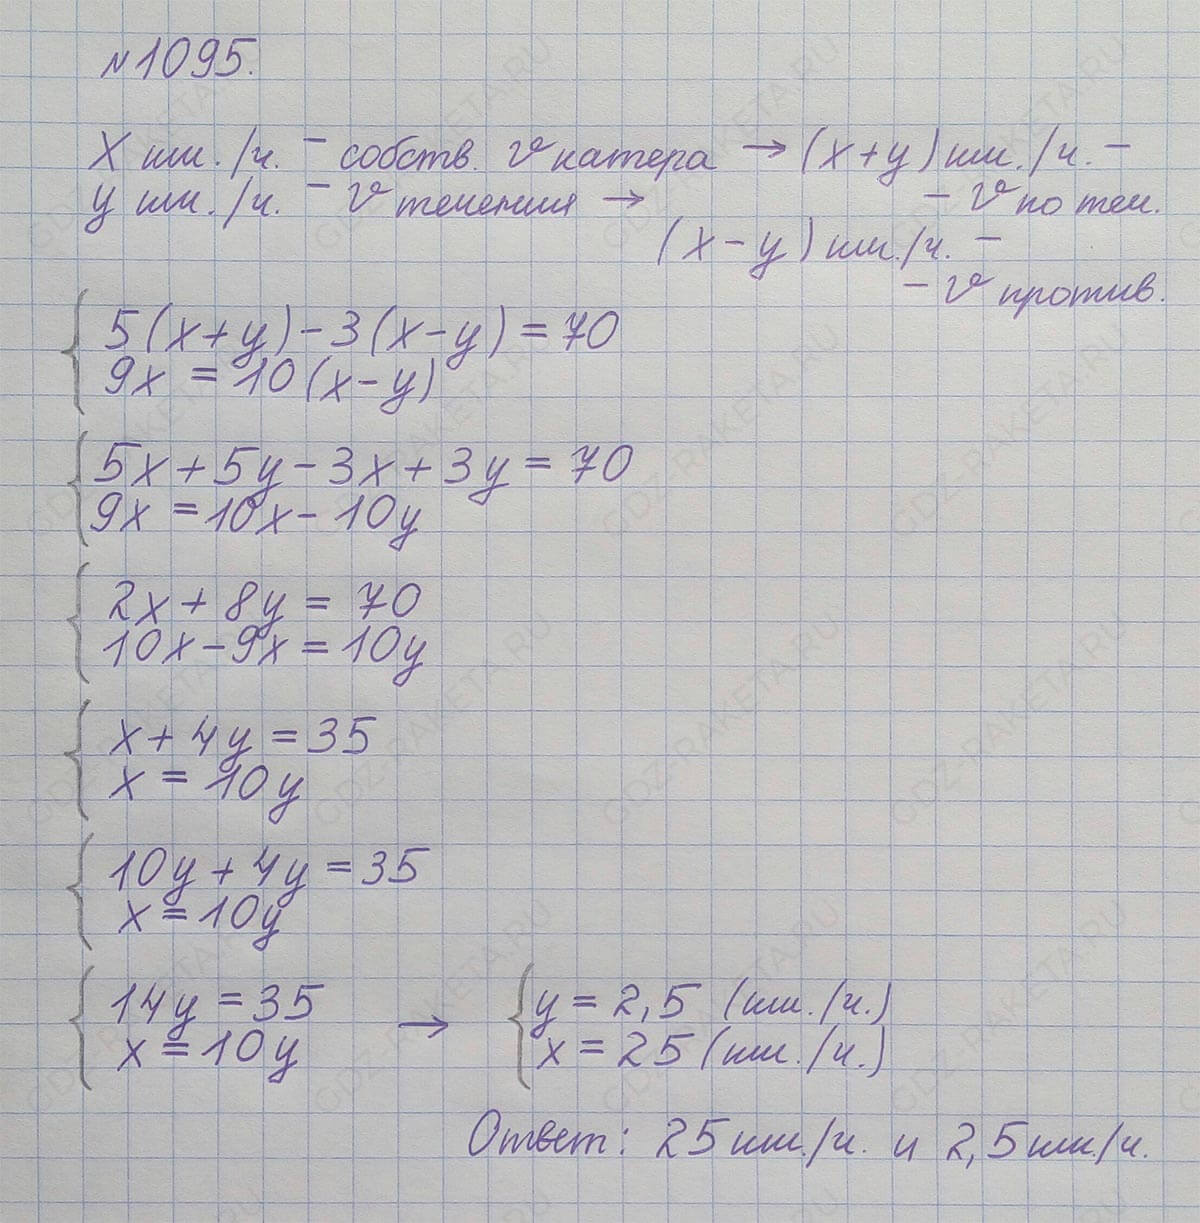 №1095.
x км./ч. – собств. v катера → (x+y) км./ч. –
y км./ч. – v течения → – v по теч.
(x–y) км./ч. –
– v против.
5(x+y)–3(x–y)=70
9x = 10(x–y)
5x+5y–3x+3y=70
9x=10x–10y
2x+8y=70
10x–9x=10y
x+4y=35
x=10y
10y+4y=35
x=10y
14y=35 → y=2,5 (км./ч.)
x=10y x=25 (км./ч.)
Ответ: 25 км./ч. и 2,5 км/ч.
GDZ-RAKETA.RU